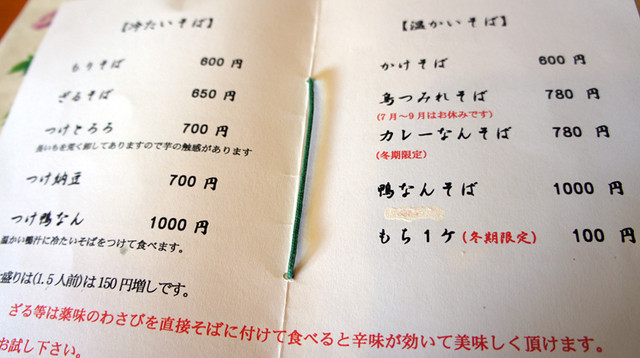 【冷たいそば】
もりそば 600 円
ざるそば 650 円
つけとろろ 700 円
長いもを荒く卸してありますので芋の触感があります
つけ納豆 700 円
つけ鴨なん 1000 円
温かい鴨汁に冷たいそばをつけて食べます。
盛りは(1.5人前)は150円増しです。
【温かいそば】
かけそば 600 円
鳥つみれそば 780 円
(7月～9月はお休みです)
カレーなんそば 780 円
(冬期限定)
鴨なんそば 1000 円
もち1ケ(冬期限定) 100 円
ざる等は薬味のわさびを直接そばに付けて食べると辛味が効いて美味しく頂けます。
お試し下さい。